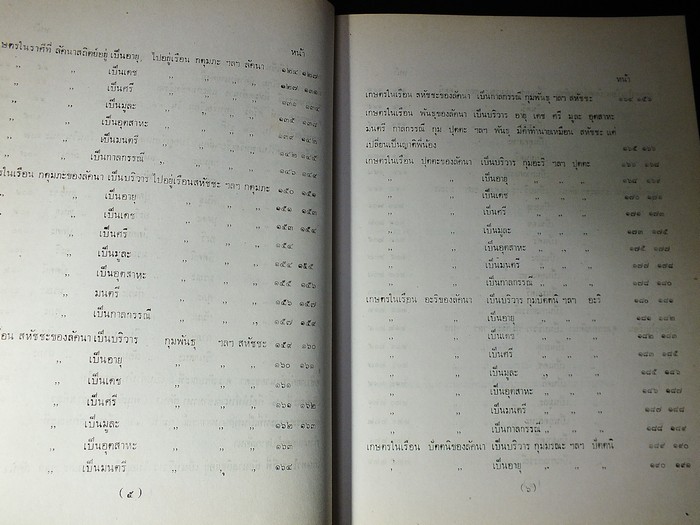 หน้า
กษตรในราศีที่ ลัคนาสถิตย์อยู่ เป็นอายุ ไปอยู่เรือน กดุมภะ ฯลฯ ลัคนา ๑๒๔ ๑๒๘
,, ,, เป็นเดช ,, ,, ,, ๑๒๗ ๑๓๑
,, ,, เป็นศรี ,, ,, ,,
,, ,, เป็นมูละ ,, ,, ,,
,, ,, เป็นอุตสาหะ ,, ,, ,, ๑๓๕
,, ,, เป็นมนตรี ,, ,, ,, ๑๓๙ ๑๔๒
,, ,, เป็นกาลกรรณี ,, ,, ,, ๑๔๒ ๑๔๕
ในเรือน กดุมภะของลัคนา เป็นบริวาร ไปอยู่เรือนสหัชชะ ฯลฯ กดุมภะ ๑๕๐ ๑๕๑
,, เป็นอายุ ,, ,, ,, ๑๕๑ ๑๕๓
,, เป็นเดช ,, ,, ,, ๑๕๓ ๑๕๔
,, เป็นศรี ,, ,, ,, ๑๕๔
,, เป็นมูละ ,, ,, ,, ๑๕๔ ๑๕๕
,, เป็นอุตสาหะ ,, ,, ,, ๑๕๕ ๑๕๖
,, มนตรี ,, ,, ,, ๑๕๖ ๑๕๗
,, เป็นกาลกรรณี ,, ,, ,, ๑๕๗ ๑๕๙
เรือน สหัชชะของลัคนา เป็นบริวาร กุมพันธุ ฯลฯ สหัชชะ ๑๕๙ ๑๖๐
,, เป็นอายุ ,, ,, ,, ๑๖๐ ๑๖๑
,, เป็นเดช ,, ,, ,, ๑๖๑
,, เป็นศรี ,, ,, ,, ๑๖๑ ๑๖๒
,, เป็นมูละ ,, ,, ,, ๑๖๒ ๑๖๓
,, เป็นอุตสาหะ ,, ,, ,, ๑๖๓
,, เป็นมนตรี ,, ,, ,, ๑๖๔
(๕)
หน้า
เกษตรในเรือน สหัชชะของลัคนา เป็นกาลกรรณี กุมพันธุ ฯลฯ สหัชชะ ๑๖๔
เกษตรในเรือน พันธุของลัคนา เป็นบริวาร อายุ เดช ศรี มูละ อุตสาหะ
มนตรี กาลกรรณี กุม ปุตตะ ฯลฯ พันธุ มีคำทำนายเหมือน สหัชชะ แต่
เปลี่ยนเป็นญาติพี่น้อง ๑๖๕ ๑๖๖
เกษตรในเรือน ปุตตะของลัคนา เป็นบริวาร กุมอะริ ฯลฯ ปุตตะ
,, ,, เป็นอายุ ,, ,, ,, ๑๖๘ ๑๖๙
,, ,, เป็นเดช ,, ,, ,,
,, ,, เป็นศรี ,, ,, ,, ๑๗๑ ๑๗๓
,, ,, เป็นมูละ ,, ,, ,, ๑๗๓ ๑๗๕
,, ,, เป็นอุตสาหะ ,, ,, ,, ๑๗๕
,, ,, เป็นมนตรี ,, ,, ,, ๑๗๗ ๑๗๘
,, ,, เป็นกาลกรรณี ,, ,, ,, ๑๗๘
เกษตรในเรือน อะริของลัคนา เป็นบริวาร กุมปัตตนิ ฯลฯ อะริ ๑๘๑
,, ,, เป็นอายุ ,, ,, ,,
,, ,, เป็นเดช ,, ,, ,, ๑๘๒ ๑๘๓
,, ,, เป็นศรี ,, ,, ,, ๑๘๓ ๑๘๕
,, ,, เป็นมูละ ,, ,, ,, ๑๘๕ ๑๘๖
,, ,, เป็นอุตสาหะ ,, ,, ,, ๑๘๖ ๑๘๗
,, ,, เป็นมนตรี ,, ,, ,, ๑๘๗ ๑๘๘
,, ,, เป็นกาลกรรณี ,, ,, ,, ๑๘๘ ๑๘๙
เกษตรในเรือน ปัตตนิของลัคนา เป็นบริวาร กุมมรณะ ฯลฯ ปัตตนิ ๑๘๙ ๑๙๐
,, ,, เป็นอายุ ,, ,, ,, ๑๙๐ ๑๙๑
(๖)